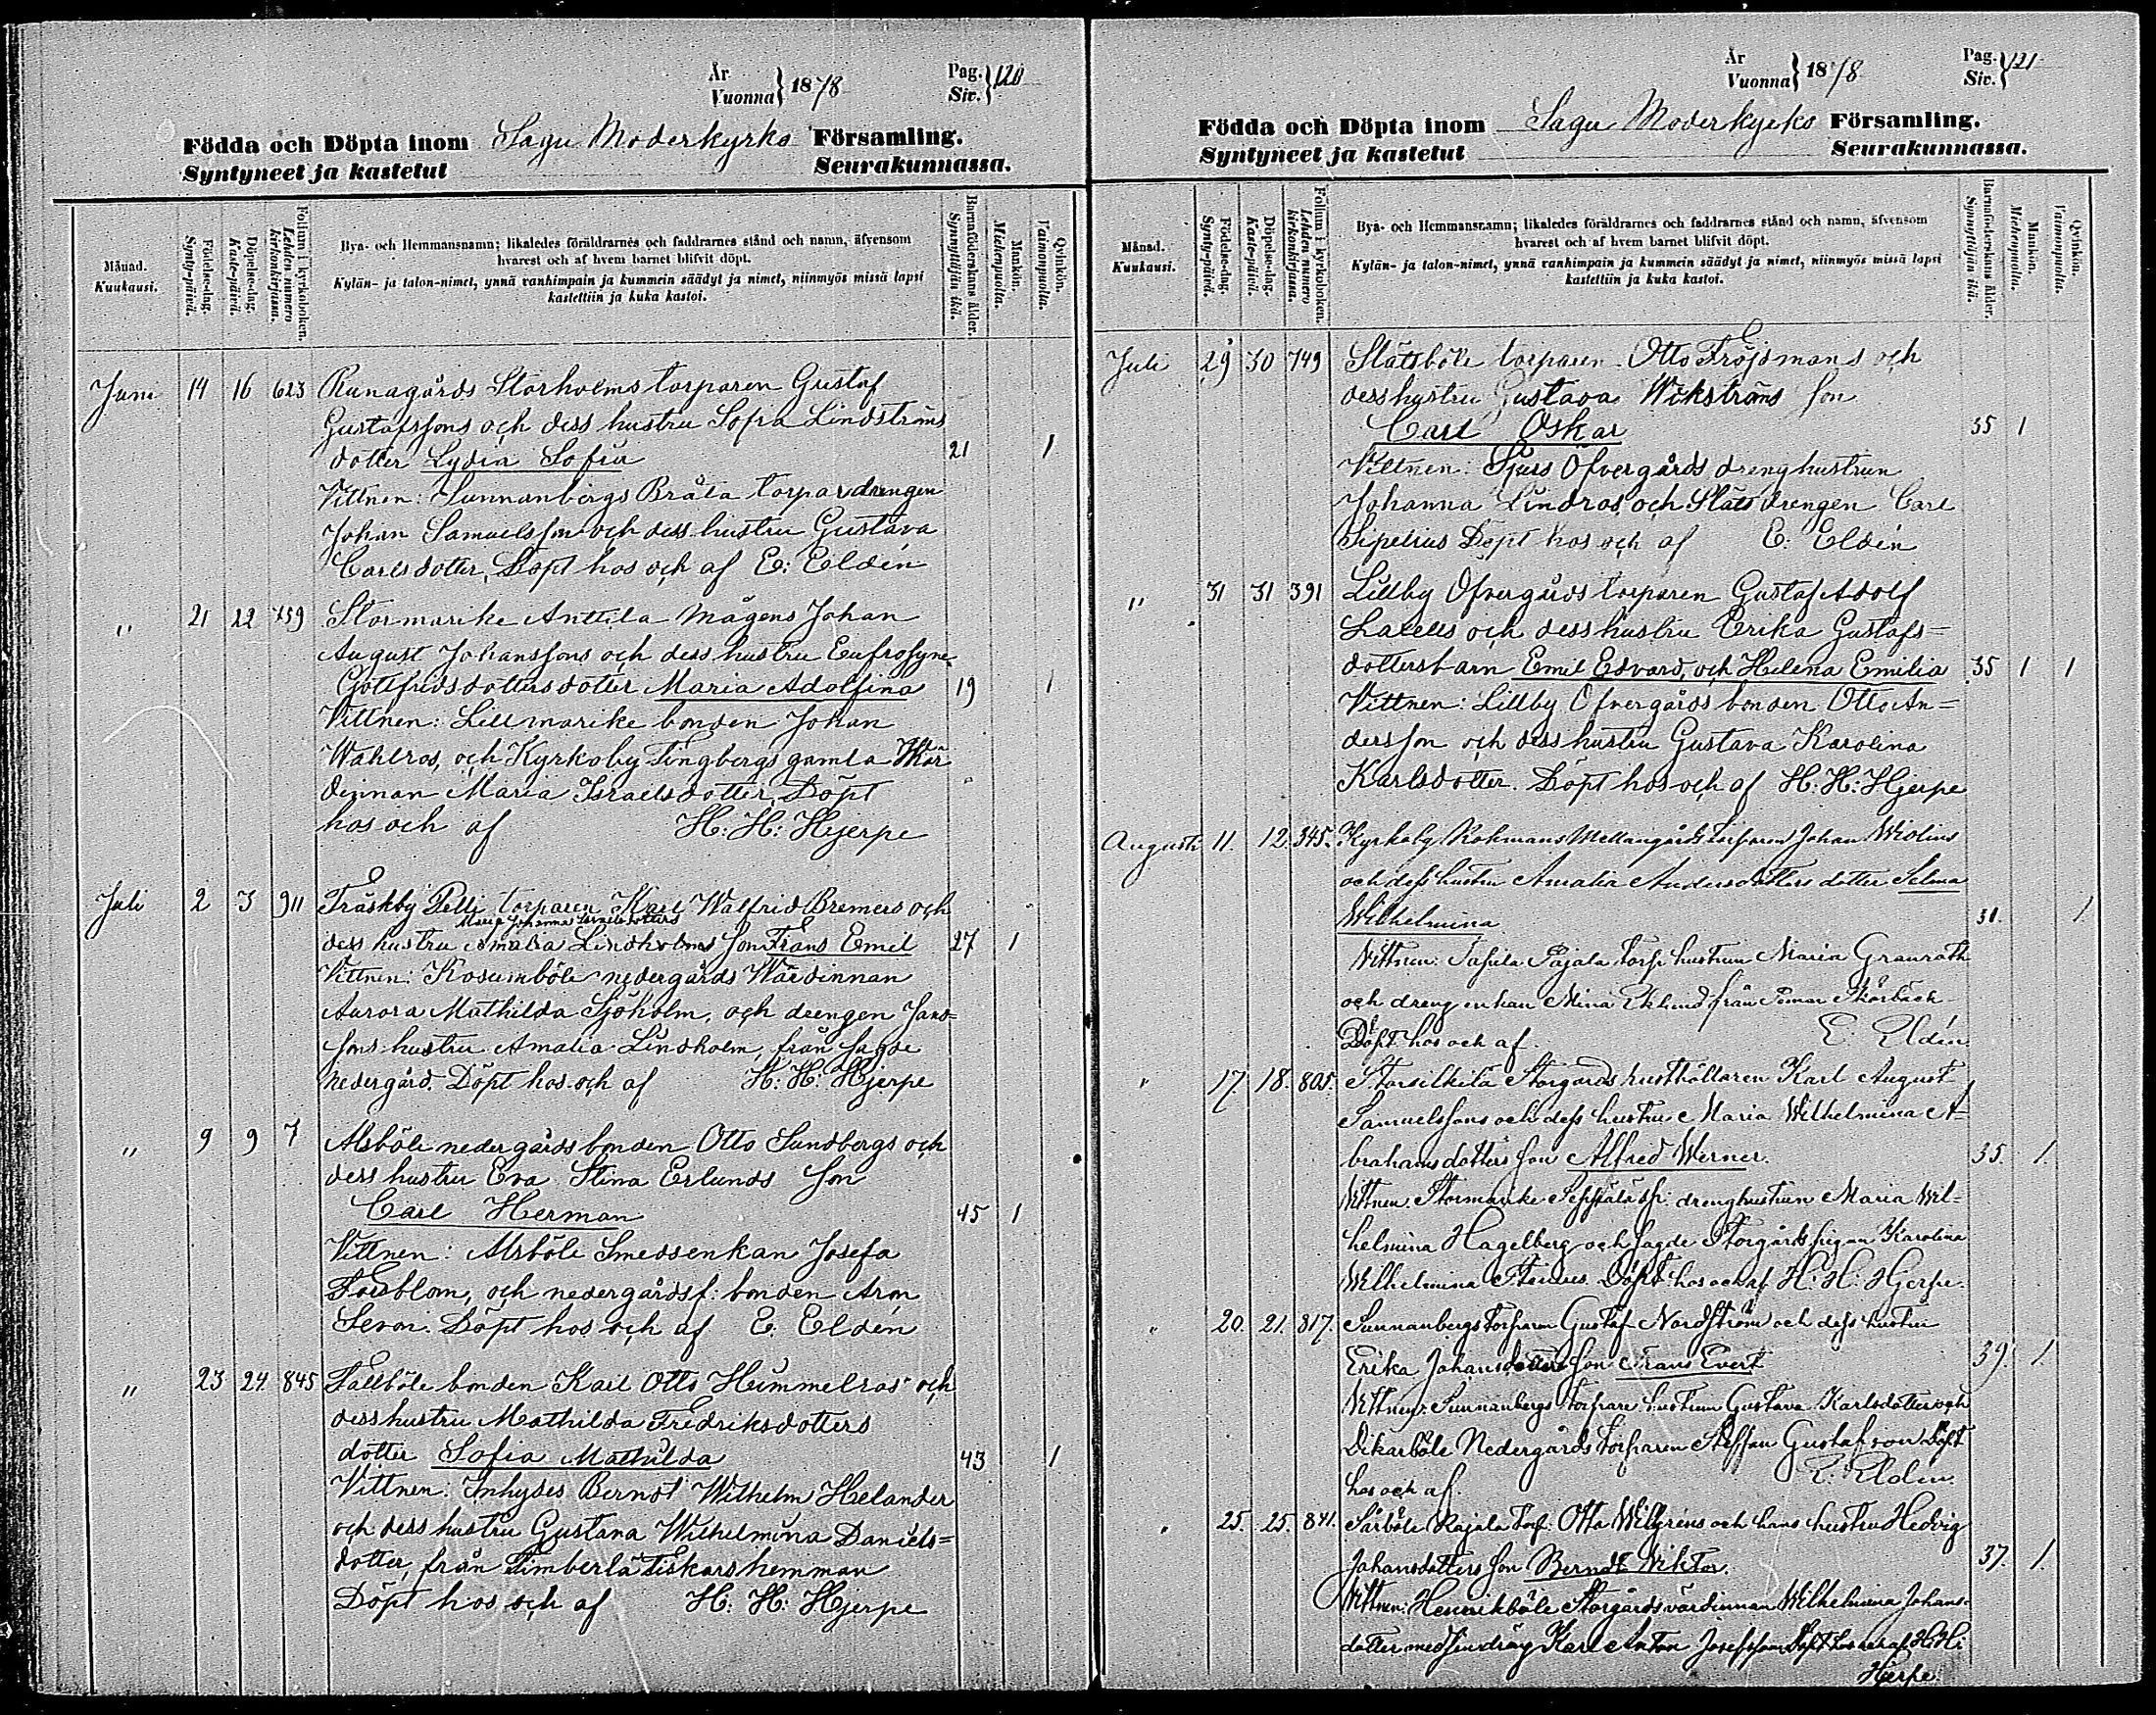 År
Vuonna } 1878
Pag.
Siv. } 120
Födda och Döpta inom Sagu Moderkyrko Församling.
Syntyneet ja kastetut Seurakunnassa.
Månad.
Kuukausi.
Födelse-dag.
Synty-päivä.
Döpelse-dag.
Kaste-päivä.
Folium i kyrkoboken.
Lehden numero
kirkonkirjassa.
Bya- och Hemmansnamn; likaledes föräldrarnes och faddrarnes stånd och namn, äfvensom
hvarest och af hvem barnet blifvit döpt.
Kylän- ja talon-nimet, ynnä vanhimpain ja kummein säädyt ja nimet, niinmyös missä lapsi
kastettiin ja kuka kastoi.
Barnaföderskans ålder.
Synnyttäjän ikä.
Mankön.
Miehenpuolta.
Qvinkön.
Vaimonpuolta.
Juni 14 16 623 Runagårds Storholms torparen Gustaf
Gustafssons och dess hustru Sofia Lindströms
dotter Lydia Sofia 21 1
Vittnen: Sunnanbergs Bråta torpardrengen
Johan Samuelsson och dess hustru Gustava
Carlsdotter, Döpt hos och af E: Eldén
" 21 22 759 Stormarike Anttila mågens Johan
August Johanssons och dess hustru Eufrosyne
Gottfridsdotters dotter Maria Adolfina 19 1
Vittnen: Lillmarike bonden Johan
Wahlros, och Kyrkoby Tingbergs gamla Wär
dinnan Maria Israelsdotter Döpt
hos och af H: H: Hjerpe
Juli 2 3 911 Träskby Pelli torparen Karl Walfrid Bremers och
Maria Johanna Israelsdotters
dess hustru Amalia Lindholms son Frans Emil 27 1
Vittnen: Kosumböle nedergårds Wärdinnan
Aurora Mathilda Sjöholm, och drengen Jans=
sons hustru Amalia Lindholm, från Sagde
nedergård. Döpt hos och af H: H: Hjerpe
" 9 9 7 Alsböle nedergårds bonden Otto Sundbergs och
dess hustru Eva Stina Erlunds son
Carl Herman 45 1
Vittnen: Alsböle Smedsenkan Josefa
Forsblom, och nedergårds f: bonden Aron
Döpt hos och af E: Eldén
" 23 24 845 Sallböle bonden Karl Otto Hummelros och
dess hustru Mathilda Fredriksdotters
dotter Sofia Mathilda 43 1
Vittnen: Inhyses Berndt Wilhelm Helander
och dess hustru Gustava Wilhelmina Daniels=
dotter, från Timberla Tiskars hemman
Döpt hos och af H: H: Hjerpe
År
Vuonna } 1878
Pag.
Siv. } 121
Födda och Döpta inom Sagu Moderkyrko Församling.
Syntyneet ja kastetut Seurakunnassa.
Månad.
Kuukausi.
Födelse-dag.
Synty-päivä.
Döpelse-dag.
Kaste-päivä.
Folium i kyrkoboken.
Lehden numero
kirkonkirjassa.
Bya- och Hemmansnamn; likaledes föräldrarnes och faddrarnes stånd och namn, äfvensom
hvarest och af hvem barnet blifvit döpt.
Kylän- ja talon-nimet, ynnä vanhimpain ja kummein säädyt ja nimet, niinmyös missä lapsi
kastettiin ja kuka kastoi.
Barnaföderskans ålder.
Synnyttäjän ikä.
Mankön.
Miehenpuolta.
Qvinkön.
Vaimonpuolta.
Juli 29 30 749 Slätsböle torparen Otto Fröjdmans och
dess hustru Gustava Wikströms son
Carl Oskar 35 1
Vittnen: Sjurs Ofvergårds drenghustrun
Johanna Lindros, och Släts drengen Carl
Sipelius Döpt hos och af E: Eldén
" 31 31 391 Lillby Ofvergårds torparen Gustaf Adolf
och dess hustru Erika Gustafs=
dotters barn Emil Edvard, och Helena Emilia 35 1 1
Vittnen: Lillby Ofvergårds bonden Otto An=
dersson och dess hustru Gustava Karolina
Karlsdotter. Döpt hos och af H: H: Hjerpe
Augusti 11. 12. 345. Kyrkoby Kokmans Mellangårds torparen Johan Wiolins
och dess hustru Amalia Andersdotters dotter Selma
Wilhelmina 31. 1.
Vittnen: Pajala torp: hustrun Maria Granroth
och dreng enkan Mina Eklund från
Döpt hos och af. E. Eldén
" 17. 18. 805. Storsilkila Storgårds rusthållaren Karl August
Samuelssons och dess hustru Maria Wilhelmina A-
brahamsdotters son Alfred Werner. 35. 1.
Vittnen: Stormarike Seppälä drenghustrun Maria Wil=
helmina Hagelberg och Sagde Storgårds pigan Karolina
Wilhelmina Döpt hos och af H: H: Hjerpe.
" 20. 21. 817. Sunnanbergs torparen Gustaf Nordström och dess hustru
Erika Johansdotters son Frans Evert 39. 1.
Vittnen: Sunnanbergs torpare hustrun Gustava Karlsdotter och
Dikarböle Nedergårds torparen Steffan Gustafsson Döpt
hos och af. E. Eldén.
" 25. 25. 841. Särböle Rajala torp: Otto Willgrens och hans hustru Hedvig
Johansdotters son Berndt Viktor. 37. 1.
Vittnen: Henrikböle Storgårds värdinnan Wilhelmina Johans-
dotter med sin dräng Karl Anton Josefsson Döpt hos och af H: H:
Hjerpe